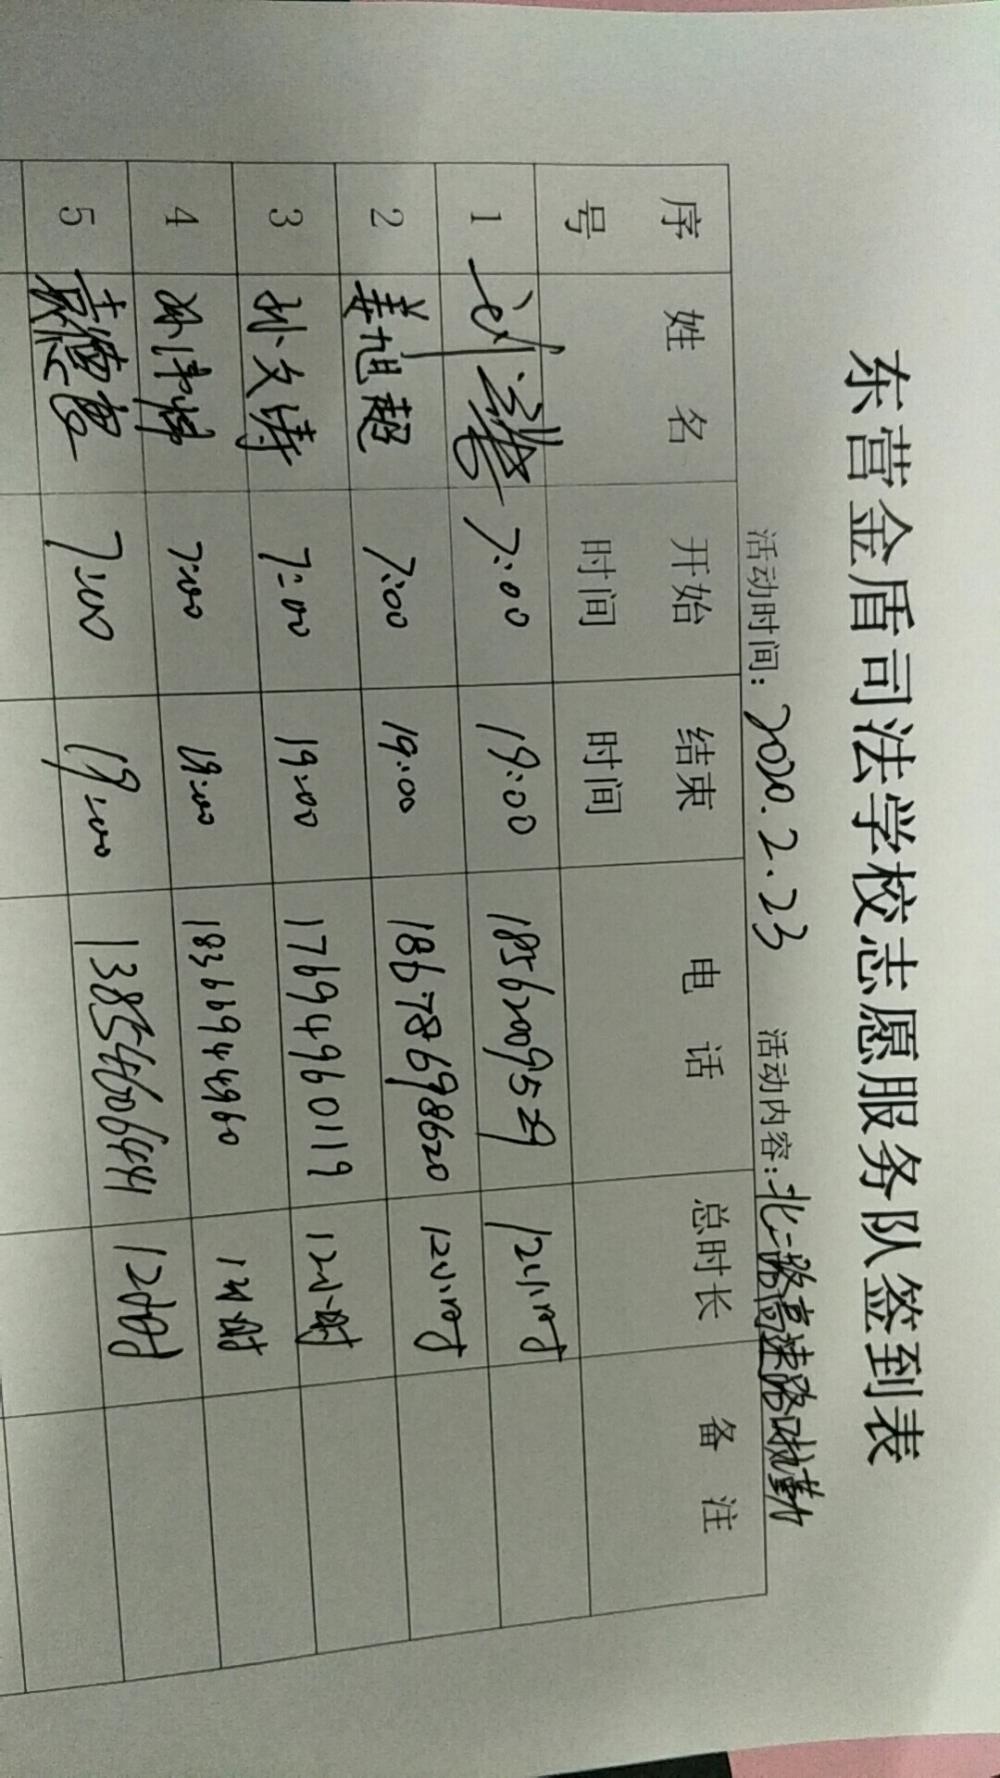 东营金盾司法学校志愿服务队签到表
活动时间：2020.2.23 活动内容：北一路高速路口执勤
序号 姓名 开始时间 结束时间 电话 总时长 备注
1 刘 7:00 19:00 18562009529 12小时
2 姜旭超 7:00 19:00 18678698620 12小时
3 孙文涛 7:00 19:00 17694960119 12小时
4 孙 7:00 19:00 18366944960 12小时
5 袁德 7:00 19:00 13854606441 12小时